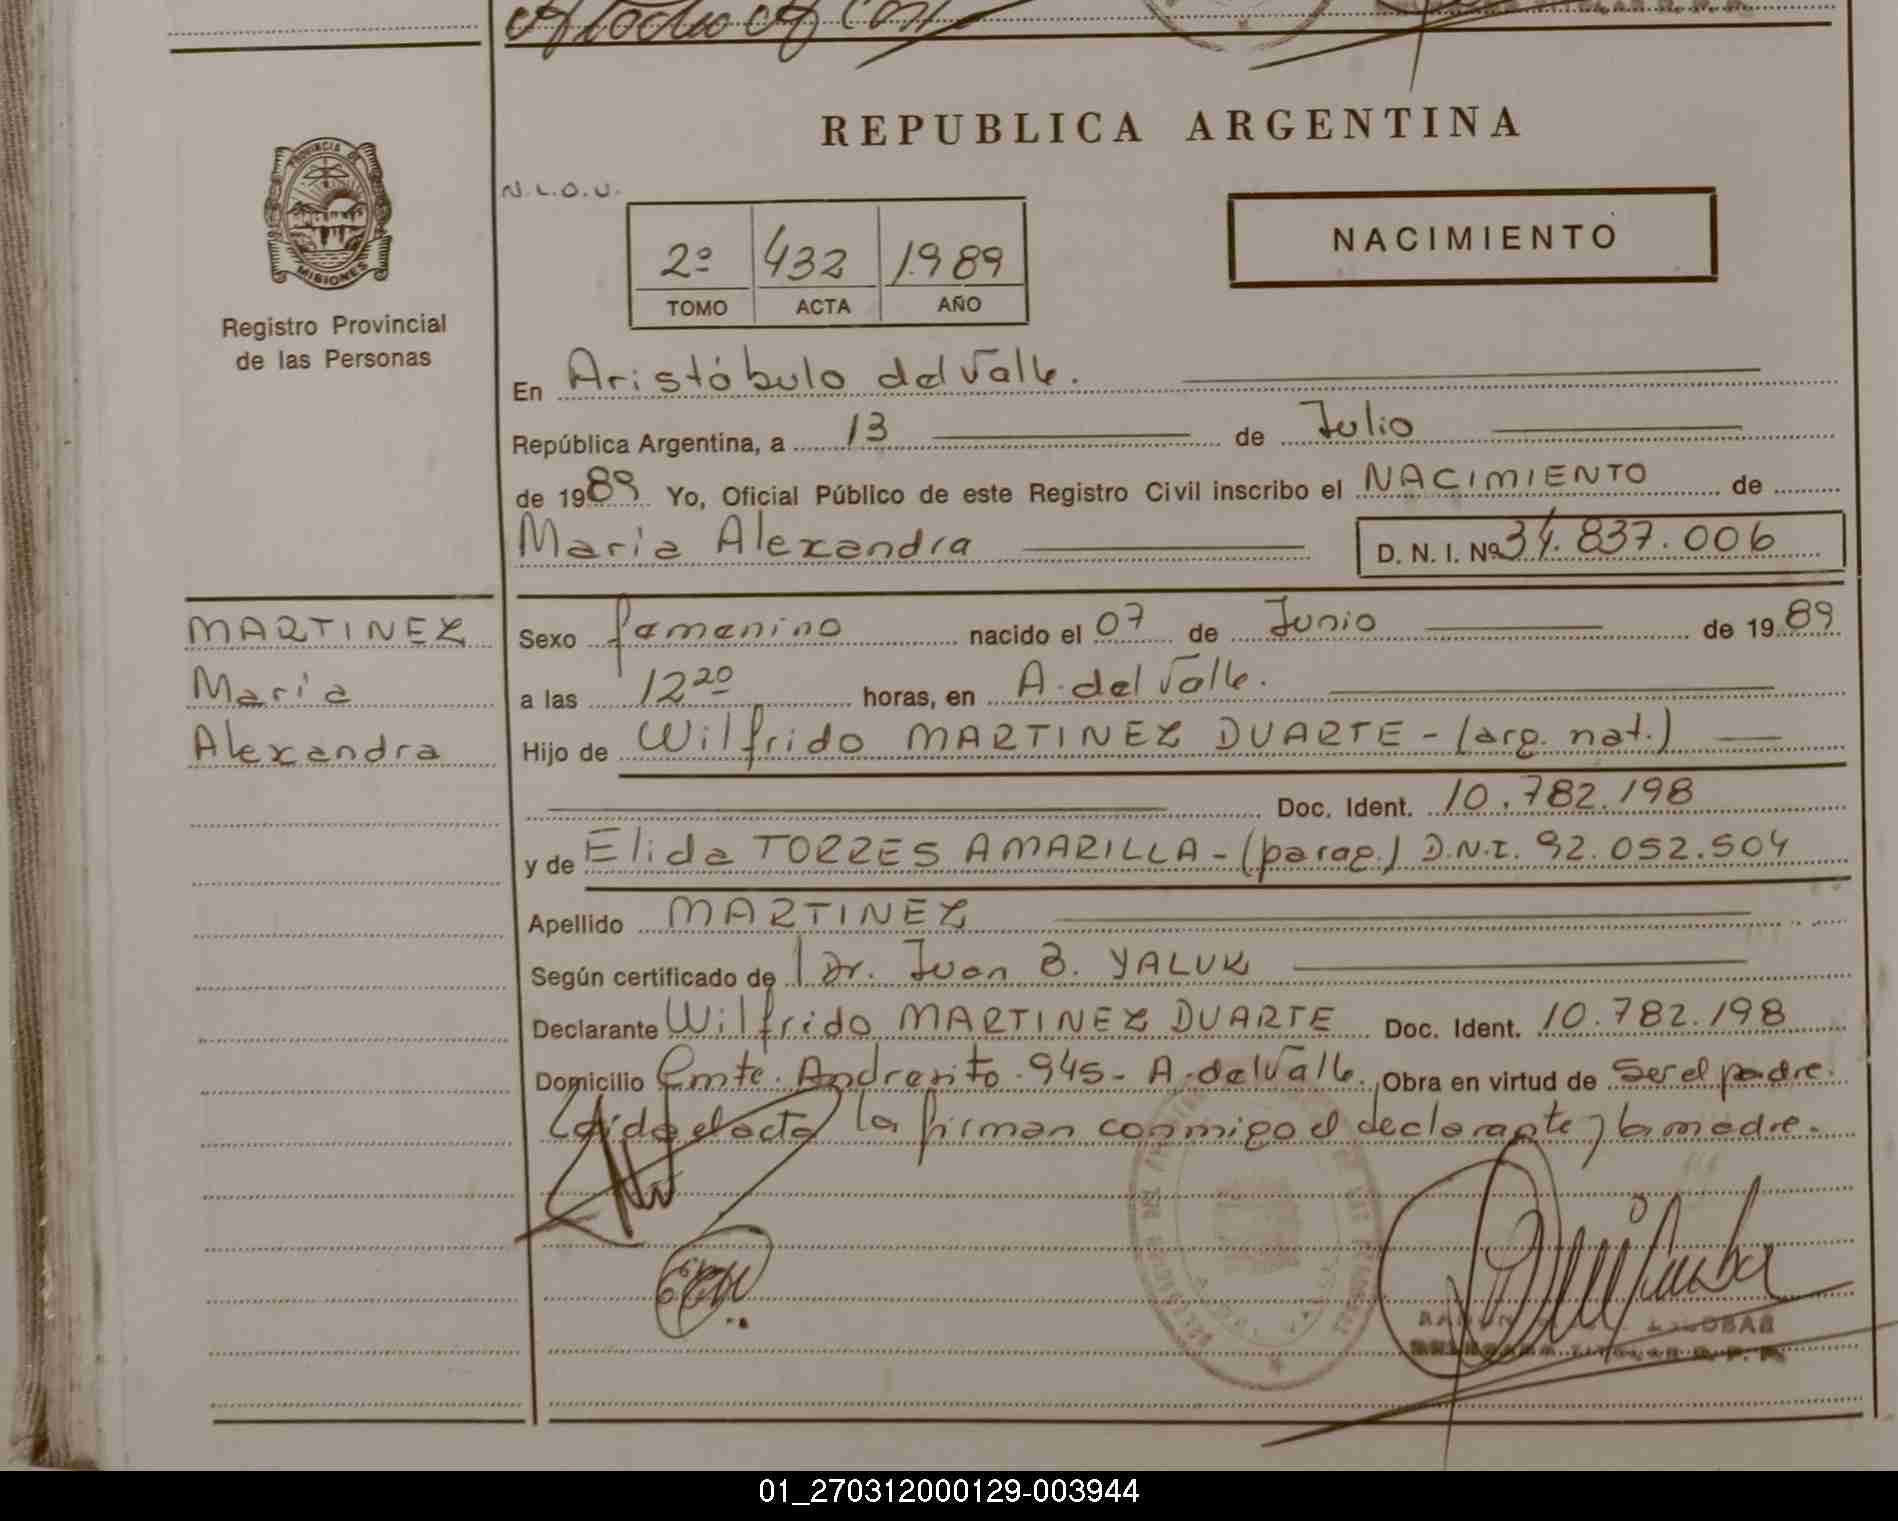 REPUBLICA ARGENTINA
PROVINCIA DE
MISIONES
Registro Provincial
de las Personas
N.L.O.U.
2º 432 1989
TOMO ACTA AÑO
NACIMIENTO
En Aristóbulo del Valle.
República Argentina, a 13 de Julio
de 1989 Yo, Oficial Público de este Registro Civil inscribo el NACIMIENTO de
María Alexandra D. N. I. Nº 34.837.006
MARTINEZ
María
Alexandra
Sexo femenino nacido el 07 de Junio de 1989
a las 12 20 horas, en A. del Valle.
Hijo de Wilfrido MARTINEZ DUARTE - (arg. nat.)
Doc. Ident. 10.782.198
y de Elida TORRES AMARILLA - (parag.) D.N.I. 92.052.504
Apellido MARTINEZ
Según certificado de Dr. Juan B. YALUK
Declarante Wilfrido MARTINEZ DUARTE Doc. Ident. 10.782.198
Domicilio Cmte. Andresito 945 - A. del Valle. Obra en virtud de Ser el padre.
Leída el acta la firman conmigo el declarante y la madre.
01_270312000129-003944